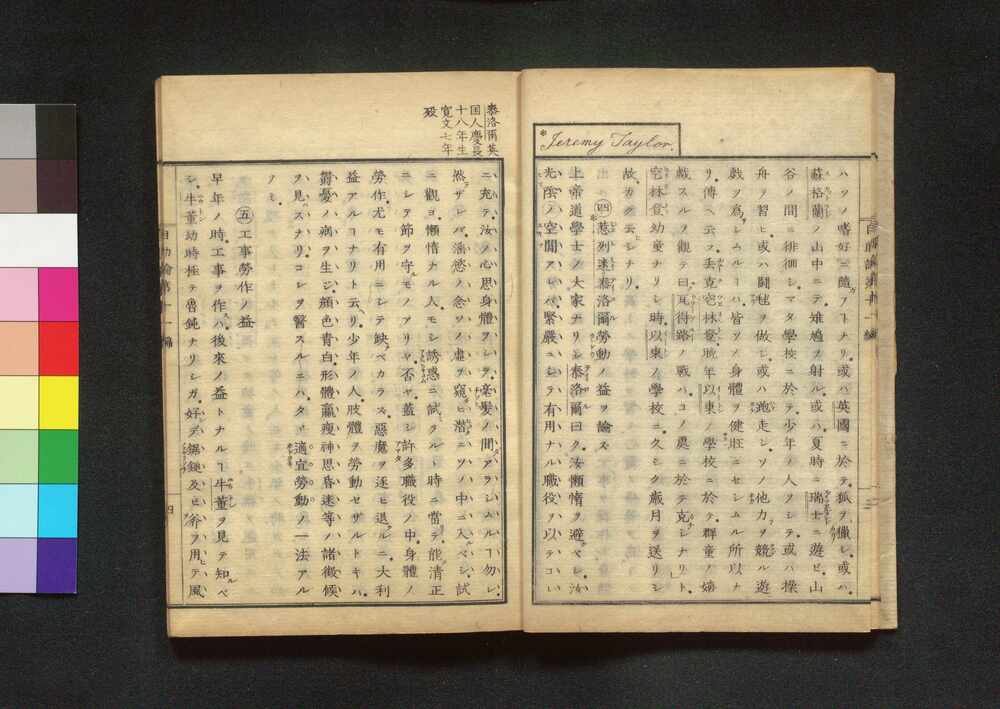 *Jeremy Taylor.
ハソノ嗜好ニ隨フトナリ。或ハ英國ニ於テ。狐ヲ獵シ。或ハ
蘇格蘭ノ山中ニテ雉鳩ヲ射ル。或ハ夏時ニ瑞士ニ遊ビ。山
谷ノ間ニ徘徊シ。マタ學校ニ於テ。少年ノ人ヲシテ。或ハ操
舟ヲ習ヒ。或ハ鬪毬ヲ做シ。或ハ跑走シ。ソノ他力ヲ競ル遊
戲ヲ爲サシムルヿハ。皆ソノ身體ヲ健旺ニセシムル所以ナ
リ。傳ヘ云フ。丟克空林登。晩年以東ノ學校ニ於テ。群童ノ嬉
戲スルヲ觀テ曰。瓦得路ノ戰ハ。コノ處ニ於テ克シナリト。
空林登幼童ナリシ時。以東ノ學校ニ。久シク歲月ヲ送リシ
故。カク云シナリ。
㊃*惹列迷泰洛爾勞動ノ益ヲ論ズ
上帝道學士ノ大家ナリシ泰洛爾曰ク。汝懶惰ヲ避ベシ。汝
光陰ノ空間アレバ。緊嚴ニシテ有用ナル職役ヲ以テコレ
泰洛爾英
国人慶長
十八年生
寛文七年
歿
ニ充テ。汝ノ心思身體ヲシテ。毫髪ノ間アラシムルヿ勿レ。
然ザレバ。淫慾ノ念ソノ虚ヲ窺ヒ。潜ニソノ中ニ入ベシ。試
ニ觀ヨ。懶惰ナル人。モシ誘惑ニ試ラルヽ時ニ當テ。能清正
ニシテ節ヲ守ルモノアリヤ否ヤ。蓋シ許多職役ノ中。身體ノ
勞作。尤モ有用ニシテ缺ベカラズ。惡魔ヲ逐ヒ退ルニ。大利
益アルコナリト云リ。少年ノ人。肢體ヲ勞動セザルトキハ。
鬱憂ノ病ヲ生ジ。顏色青白。形體羸瘦。神思昏迷等ノ諸徵候
ヲ見スナリ。コレヲ醫スルニハ。タヾ適宜勞動ノ一法アル
ノミ。
㊄工事勞作ノ益
早年ノ時。工事ヲ作スハ。後來ノ益トナルヿ。牛董ヲ見テ知ベ
シ。牛董幼時極テ魯鈍ナリシガ。好デ鋸鎚及ビ斧ヲ用テ。風